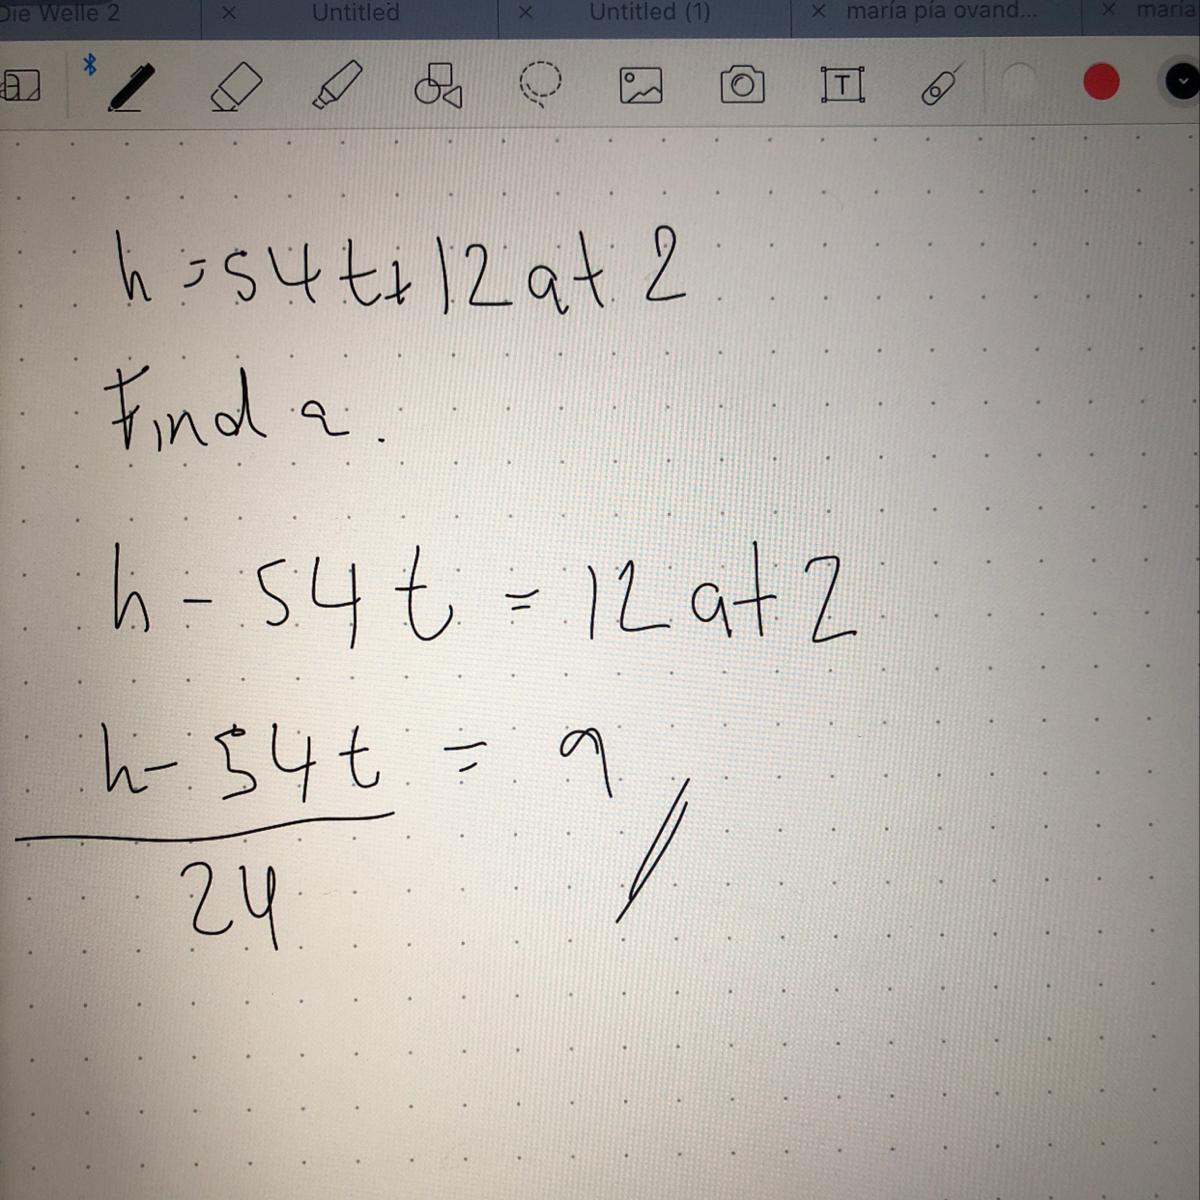 Die Welle 2 × Untitled × Untitled (1) × maría pía ovand... × maría
T
h = 54t + 12at2
Find a.
h - 54t = 12at2
h - 54t = a
24